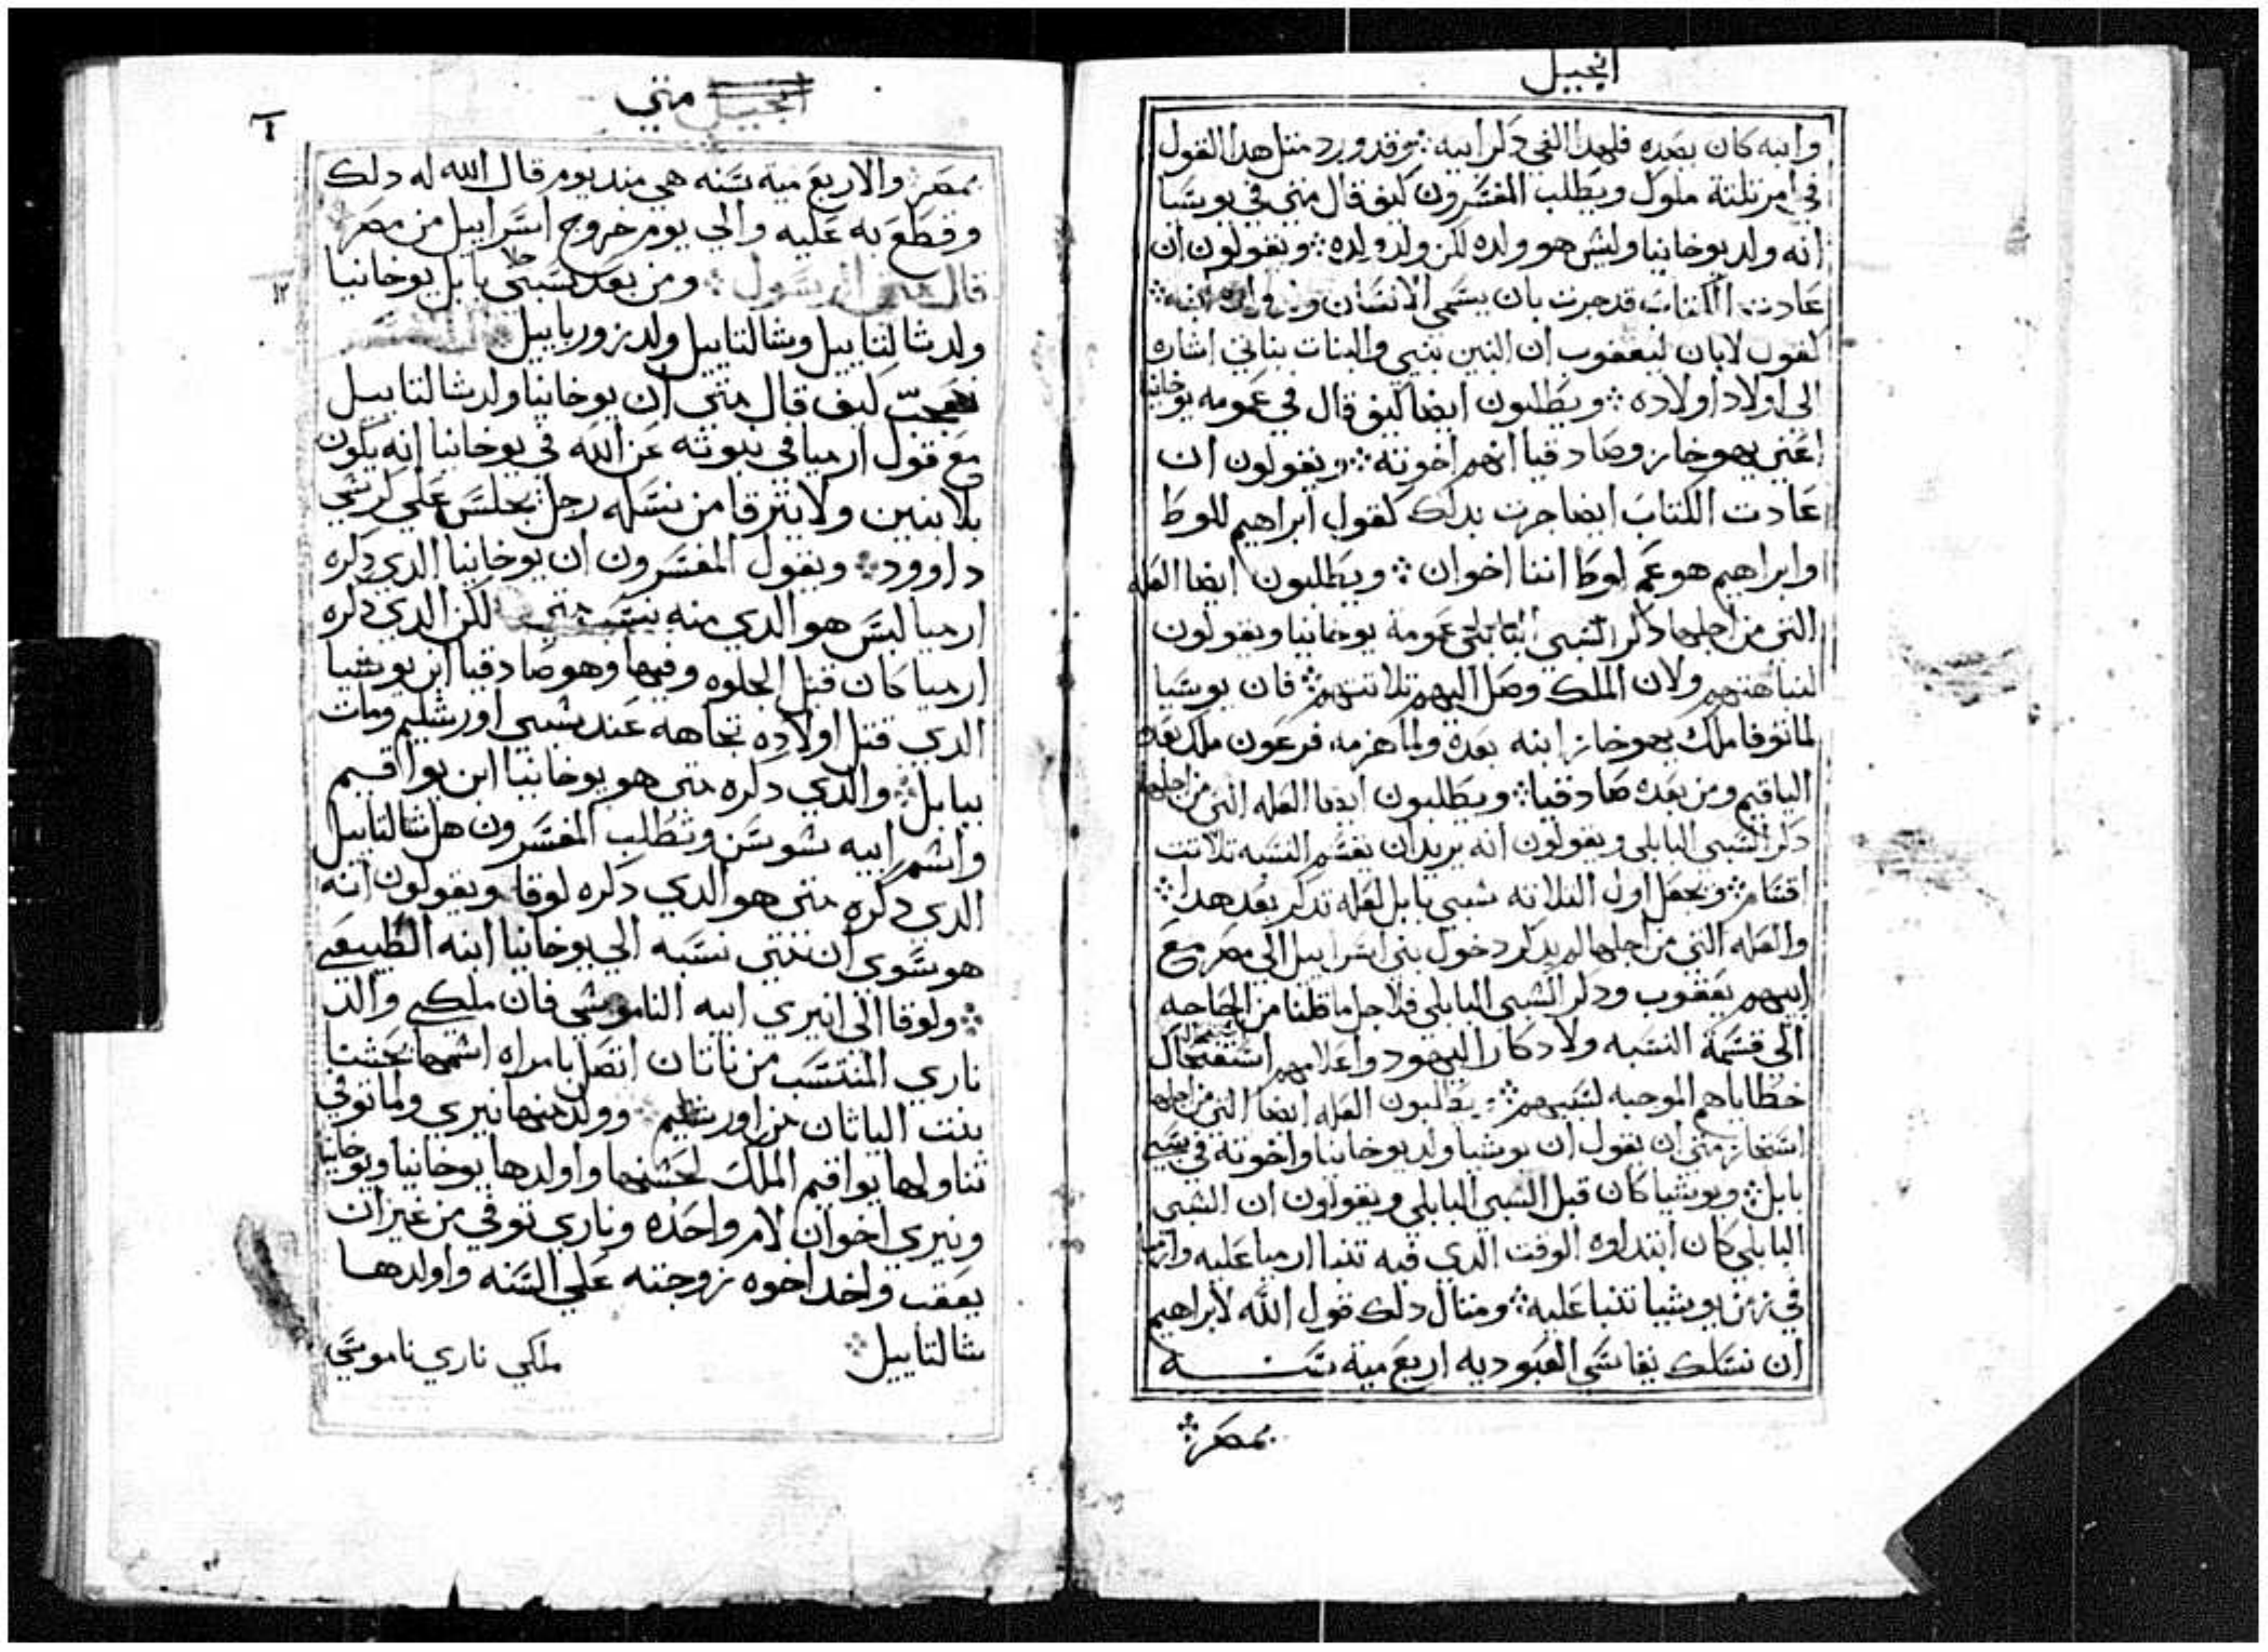 انجيل
وابنه كان بعده فلهدا الغي دكر ابيه ܀ وقد ورد متل هدا القول
في امر تلتة ملوك ويطلب المفسرون كيف قال متي في يوشيا
انه ولد يوخانيا وليس هو ولده لكن ولد ولده ܀ ويقولون ان
عادت الكتاب قد جرت بان يسمي الانسان
كقول لابان ليعقوب ان البنين بنيي والبنات بناتي اشاره
الي اولاد اولاده ܀ ويطلبون ايضا كيف قال في عمومه يوخانيا
اعني يهوخاز وصادقيا انهم اخوته ܀ ويقولون ان
عادت الكتاب ايضا جرت بدلك كقول ابراهيم للوط
وابراهيم هو عم لوط اننا اخوان ܀ ويطلبون ايضا العله
التي من اجلها دكر عمومة يوخانيا ويقولون
لنباهتهم ولان الملك وصل اليهم تلاتتهم ܀ فان يوشيا
لما توفا ملك يهوخاز ابنه بعده ولما هزمه فرعون ملك بعده
الياقيم ومن بعده صادقيا ܀ ويطلبون ايضا العله التي من اجلها
دكر السبي البابلي ويقولون انه يريد ان يقسم النسبه تلاتت
اقسام ܀ ويجعل اول التلاته سبي بابل لعله تدكر بعد هدا ܀
والعله التي من اجلها لم يدكر دخول بني اسراييل الي مصر مع
ابيهم يعقوب ودكر السبي البابلي فلاجل ما قلنا من الحاجه
الي قسمة النسبه ولادكار اليهود واعلامهم استفحال
خطاياهم الموجبه لسبيهم ܀ ويطلبون العله ايضا التي من اجلها
استجاز متي ان يقول ان يوشيا ولد يوخانيا واخوته في سبي
بابل ܀ ويوشيا كان قبل السبي البابلي ويقولون ان السبي
البابلي كان ابتداوه الوقت الدي فيه تنبا ارميا عليه وارميا
في زمن يوشيا تنبا عليه ܀ ومتال دلك قول الله لابراهيم
ان نسلك يقاسي العبوديه اربع مية سنه
بمصر ܀
انجيل متي
٦
بمصر والاربع مية سنه هي مند يوم قال الله له دلك
وقطع به عليه والي يوم خروج اسراييل من مصر
قال متي الرسول ܀ ومن بعد سبي بابل يوخانيا
١٢
ولد شالتاييل وشالتاييل ولد زوربابيل
كيف قال متي ان يوخانيا ولد شالتاييل
مع قول ارميا في نبوته عن الله في يوخانيا انه يكون
بلا بنين ولا يترقا من نسله رجل يجلس علي كرسي
داوود ܀ ويقول المفسرون ان يوخانيا الدي دكره
ارميا ليس هو الدي منه ينسب متي لكن الدي دكره
ارميا كان قبل الجلوه وفيها وهو صادقيا ابن يوشيا
الدي قتل اولاده تجاهه عند سبي اورشليم ومات
ببابل ܀ والدي دكره متي هو يوخانيا ابن يواقيم
واسم ابيه شوسن ويطلب المفسرون هل شالتاييل
الدي دكره متي هو الدي دكره لوقا ويقولون انه
هو سوي ان متي نسبه الي يوخانيا ابنه الطبيعي
܀ ولوقا الي انيري ابيه الناموسي فان ملكي والد
ناري المنتسب من ناتان اتصل بامراه اسمها نحشتا
بنت الياتان من اورشليم وولد منها نيري ولما توفي
تناولها يواقيم الملك لحسنها واولدها يوخانيا ويوخانيا
ونيري اخوان لام واحده وناري توفي من غير ان
يعقب واخد اخوه زوجته علي السنه واولدها
شالتاييل ܀
ملكي ناري ناموسي